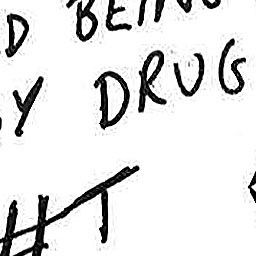 D BEING
Y DRUG
HT